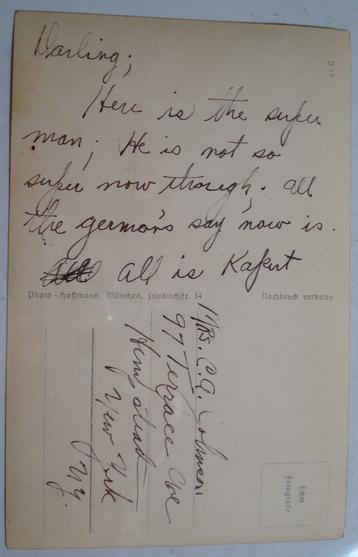 Darling;
Here is the super
man; He is not so
super now through. all
the german's say now is.
All is Kaput
Photo-Hoffmann, München, Friedrichstr. 34
Nachdruck verboten
Mrs. C.A.
97 Terrace Ave
Hempstead
New York
N.Y.
Echte
Fotografie